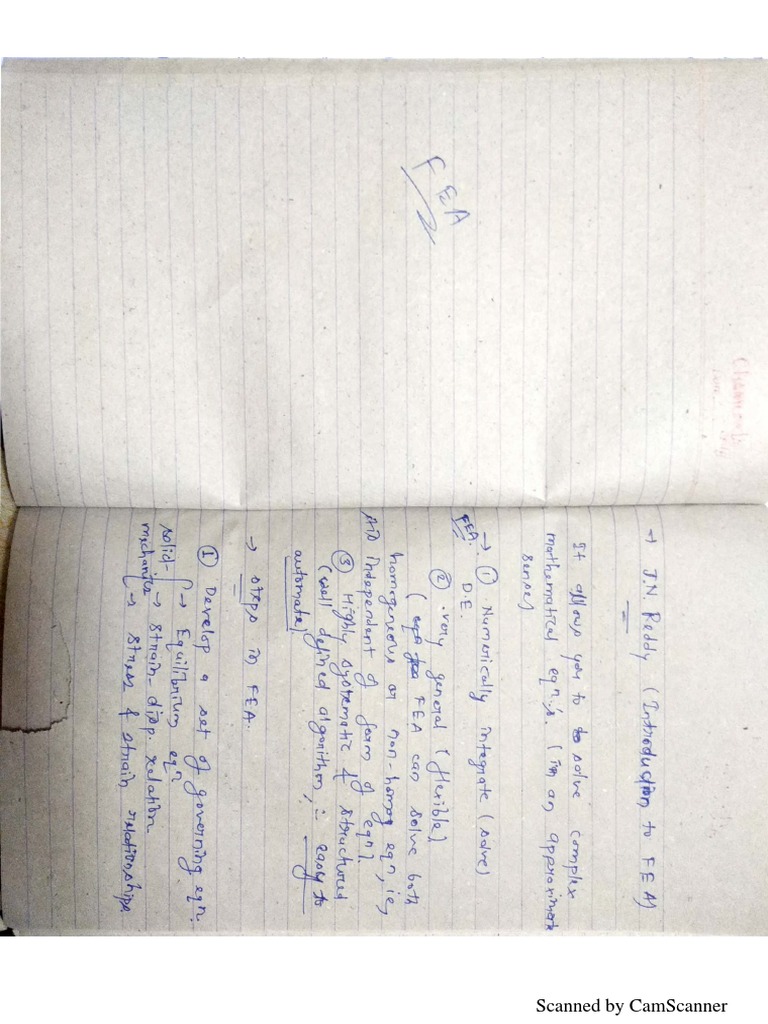 FEA
→ J.N Reddy (Introduction to FEA)
It allows you to solve complex
mathematical eqn's. (in an approximate
sense)
FEA. → ① Numerically integrate (solve)
D.E.
② very general (flexible)
( FEA can solve both
homogeneous or non-homog eqn, ie,
independent of form of eqn).
③ Highly systematic & structured
(well defined algorithm, ∴ easy to
automate)
→ steps in FEA.
① Develop a set of governing eqn.
solid mechanics → Equilibrium eqn
→ strain-disp. relation
→ stress & strain relationships
Scanned by CamScanner